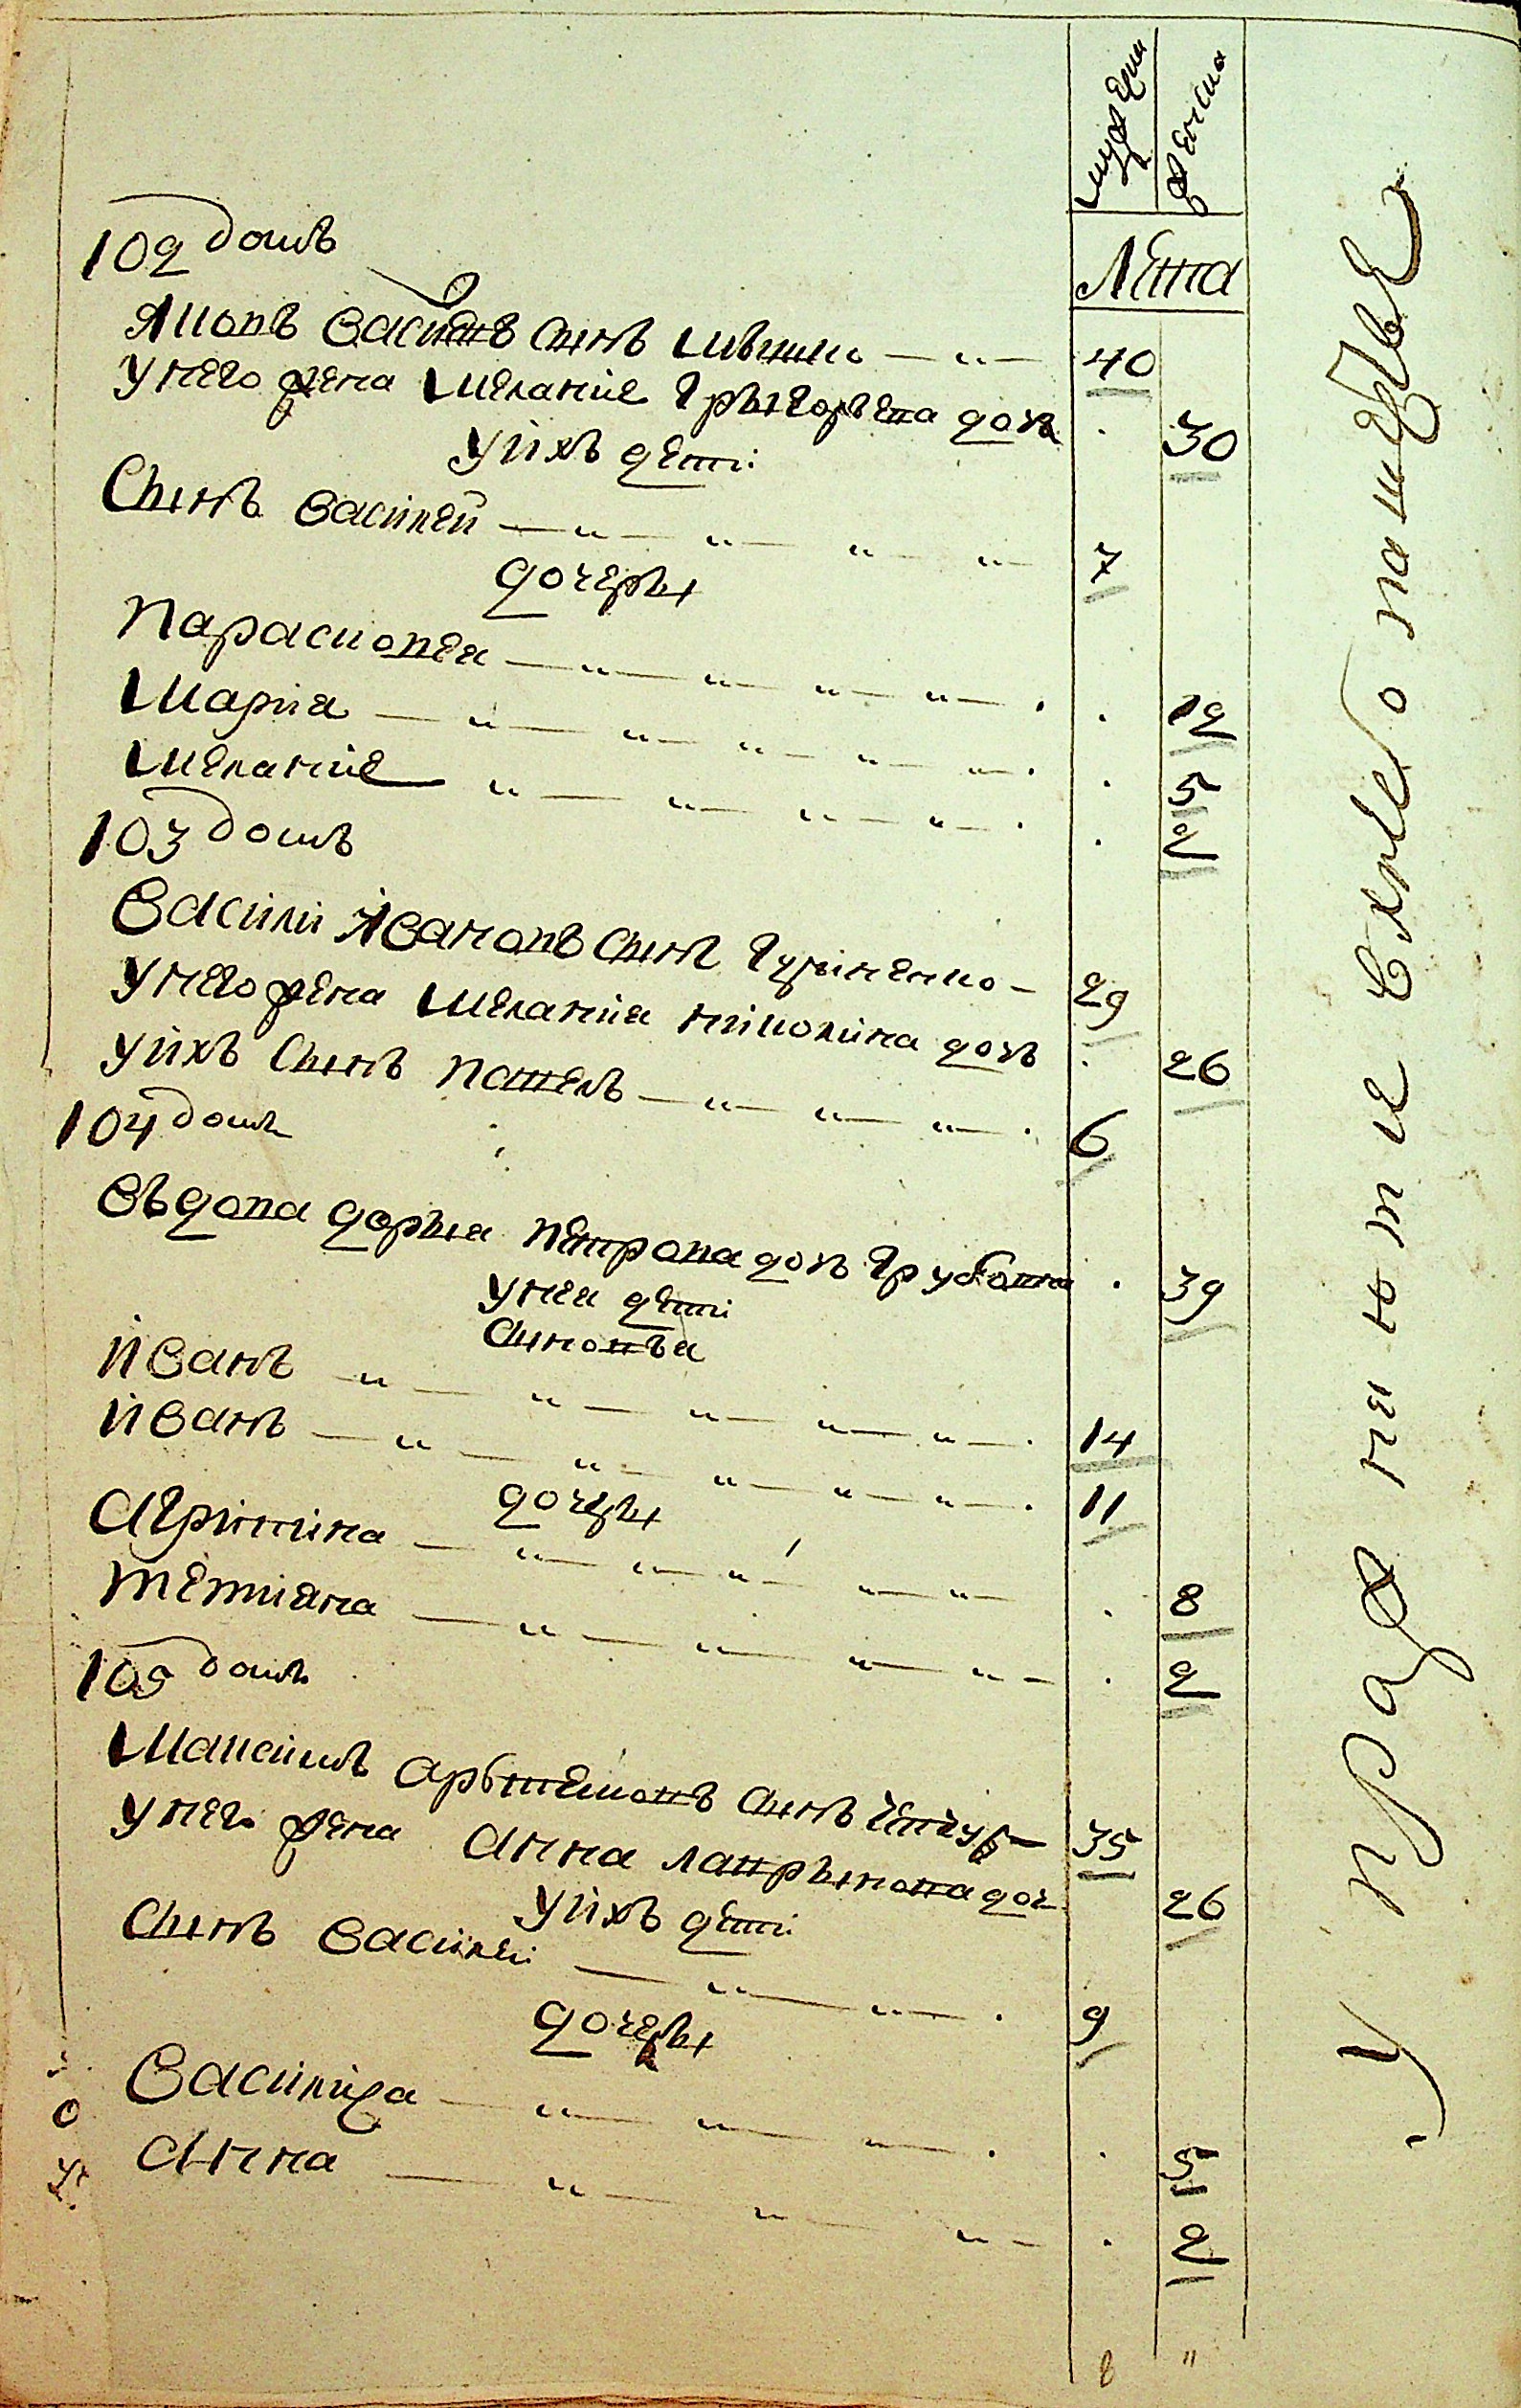 мужеска
женска
Лета
102 домъ
Яковъ Васильевъ сынъ Швыдки 40
У него жена Мелание Грыгорьева дочь 30
У йхъ дети
Сынъ Василей 7
дочеры
Парасковея 12
Мария 5
Мелание 2
103 домъ
Василий Йвановъ сынъ Гуриненко 29
У него жена Мелания Николина дочь 26
У йхъ сынъ Павелъ 6
104 домъ
Вьдова Дорыя Петрова дочь 39
У нея дети
Сыновья
Йванъ 14
Йванъ 11
дочеры
Агрипина 8
Тетиана 2
105 домъ
Максимъ Арьтемовъ сынъ 35
У него жена Анна Лаврынова доч 26
У йхъ дети
Сынъ Василей 9
дочеры
Василиса 5
Анна 2
Упражняются в хлебопашестве